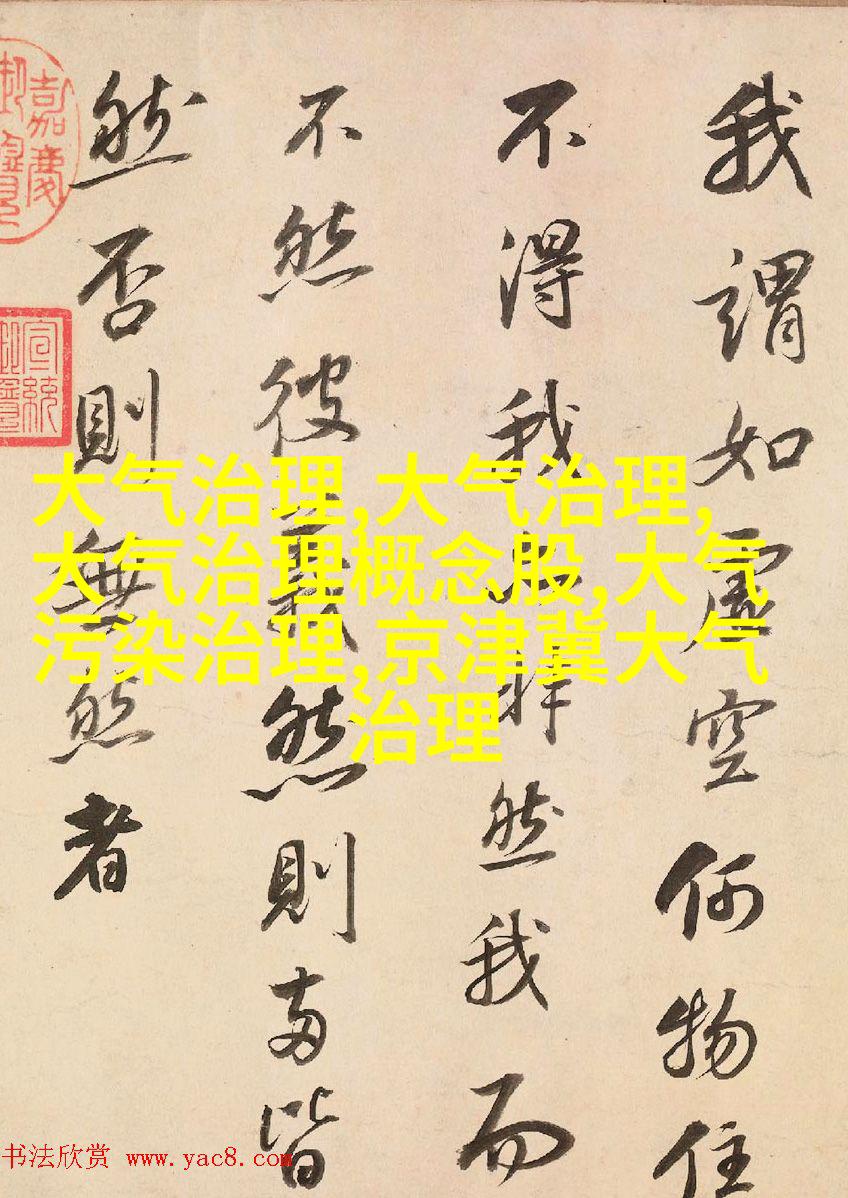 我謂如虛空何物住
不得我拜然我而
不然彼義然則兩皆
然否則無然者
嘉慶
宣統
大气治理,大气治理,
大气治理概念股,大气
污染治理,京津冀大气
治理
书法欣赏 www.yac8.com